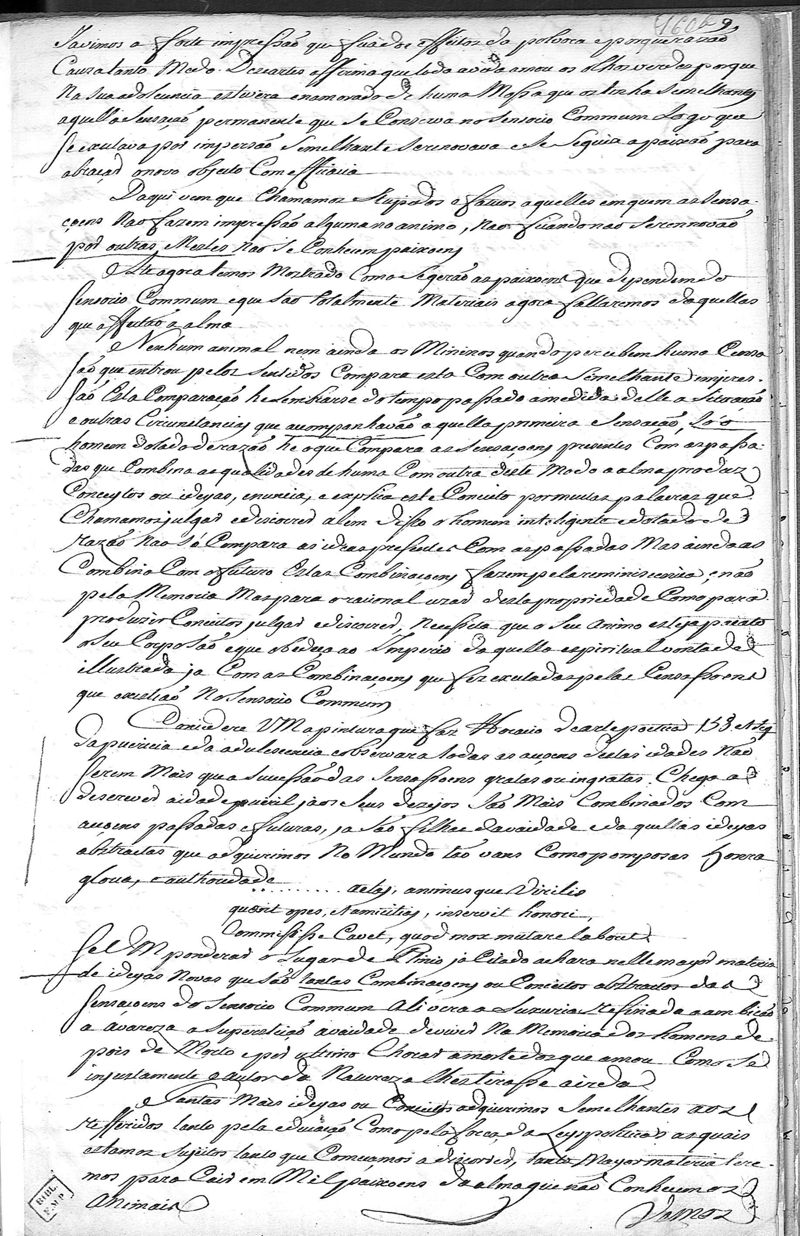 160 9
Ja vimos a forte impressão que faz do effeitos da polvora e porque razão
Causa tanto Medo. Descartes affirma que toda a vida amou os olhos verdes porque
Na sua adolescencia estivera enamorado de huma Mossa que os tinha Semelhantes
aquella sensação permanente que se Conserva no Sensorio Commum Logo que
Se exitava por impersão Semelhante Se renovava e Se Seguia a paixão para
abraçar o novo objecto Com efficacia
Daqui vem que Chamamos Stupidos e fatuos aquelles em quem as Sensa-
çoens Nao fazem impressão alguma no animo, Nao quando nao Se rennovão
por outras, Nestes nao Se Conhecem paixoens
Ate agora temos Mostrado Como Se gerão as paixoens que dependem do
Sensorio Commum e que São totalmente Materiais agora fallaremos daquellas
que affeitão a alma
Nenhum animal nem ainda os Mininos quando percebem huma Censa
são que entrou pelos Sentidos Compara esta Com outra Semelhante impres-
são Esta Comparação he lembrarse do tempo passado a medida delle a
e outras Circunstancias que acompanhavão aquella primeira Sensação, So o
homem dotado de razão he o que Compara as Sensaçoens presentes Com as passa-
das que Combina as qualidades de huma Com outra deste Modo a alma produz
Conceytos ou ideyas, enuncia, e explica este Conceito por muitas palavras que
Chamamos julgar e discorrer alem disso o homem inteligente e dotado de
razão Nao só Compara as ideas presentes Com as passadas Mas ainda as
Combina Com o futuro Estas Combinaçoens fazem pela reminiscencia, e não
pela Memoria Mas para o racional uzar desta propriedade Como para
produzir Conceitos julgar e discorrer, Necessita que o Seu Animo esteja quieto
o Seu Corpo São e que obedeça ao Imperio daquella espiritual vontade
illustrada ja Com as Combinaçoens que fez exitadas pelas Censassoens
que existião No Sensorio Commum
Considere VM a pintura que faz Horacio de arte poetica 158 et seq
da puericia e da adulescencia e observara todas as auçoens destas idades Não
Serem Mais que a Sucessão das Sensassoens gratas ou ingratas. Chega a
descrever a idade viril ja os Seus dezejos São Mais Combinados Com
auçoens passadas e futuras, ja São filhas da vaidade e daquellas ideyas
abstractas que adquirimos No Mundo tão vans Como pomposas Honra
gloria, e authoridade
.......... aetas, animusque Virilis
quærit opes, et amicitias, inservit honori,
Commisisse Cavet, quod mox mutare laboret.
Se VM ponderar o Lugar de Plinio ja Citado achara nelle mayor materia
de ideyas Novas que são tantas Combinaçoens ou Conceitos abstratos das
Sensaçoens do Sensorio Commum Ali vera a Luxuria refinada a ambição
a avareza a Superstição a vaidade de viver Na Memoria dos homens de
pois de Morto e por ultimo Chorar a morte dos que amou Como Se
injustamente o autor da Natureza lhes tirasse a vida
Tantas Mais ideyas ou Conceitos adquirimos Semelhantes aos
refferidos tanto pela educação Como pela força da Ley politica as quais
estamos Sujeitos tanto que Começamos a discorrer, tanto Mayor materia tere-
mos para Cair em Mil paixoens da alma que não Conhecem os
Animais
Vamos
BIBL.
F.M.P.